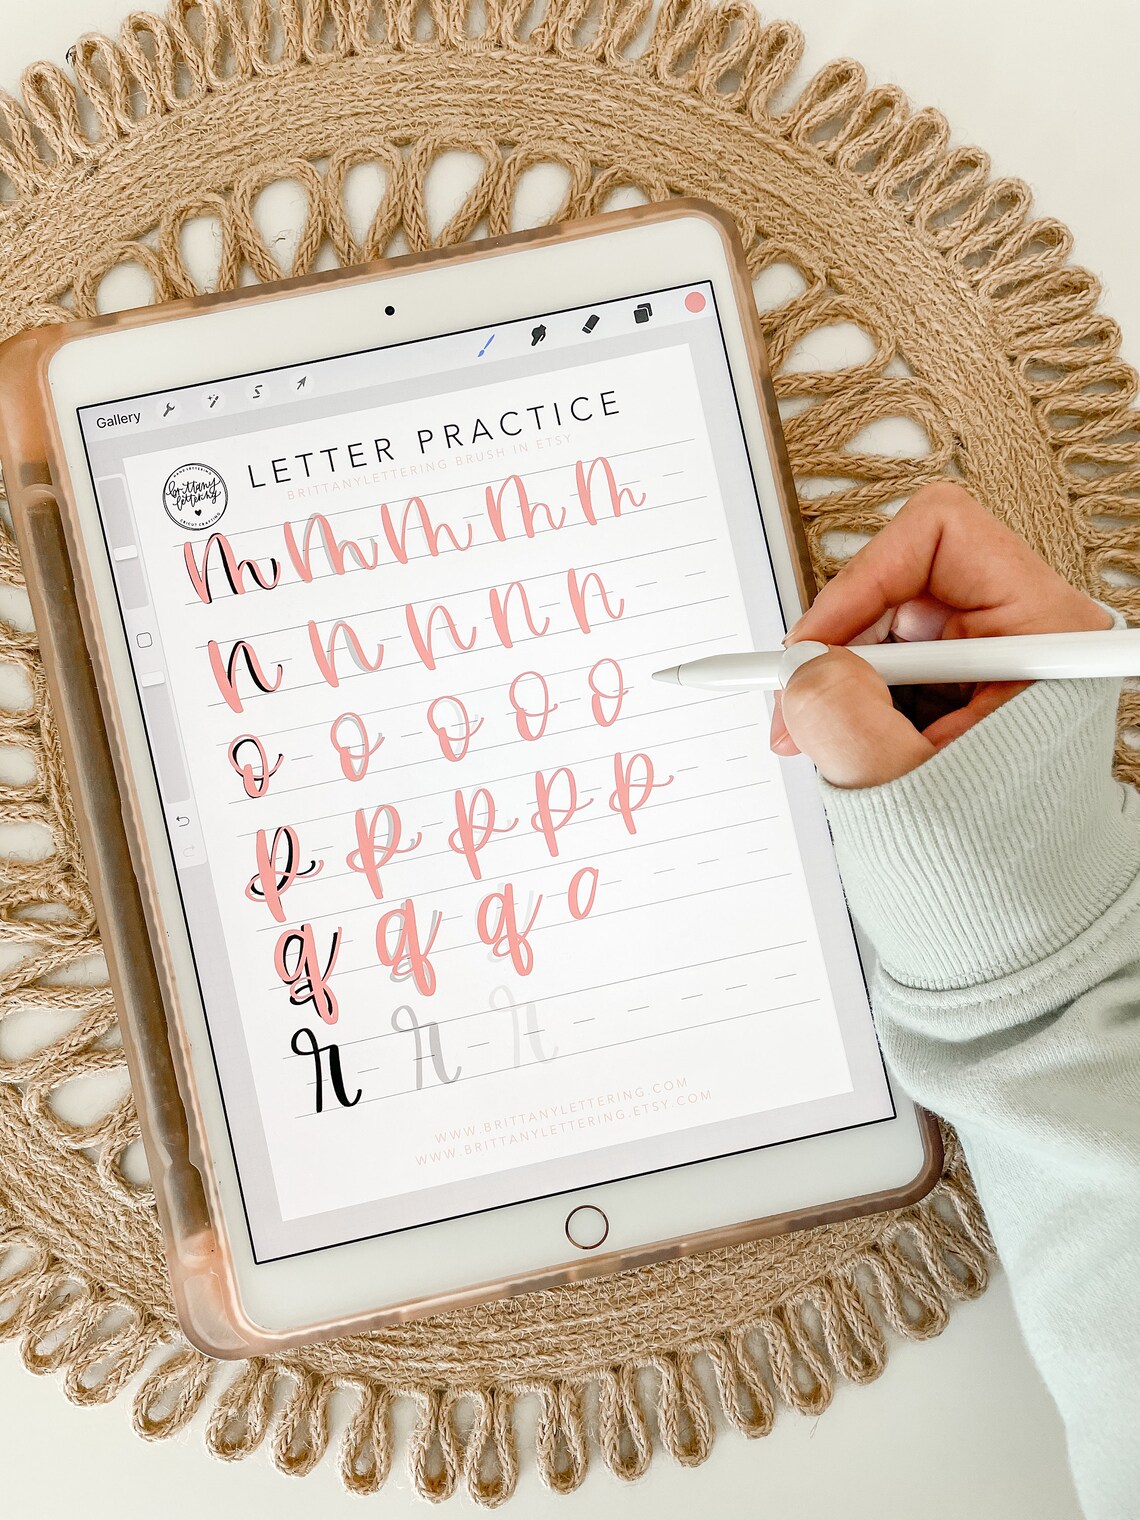 Gallery
LETTER PRACTICE
BRITTANYLETTERING BRUSH IN ETSY
HAND LETTERING
brittany
lettering
CRICUT CRAFTING
m m m m m
n n n n n
o o o o o
p p p p p
q q q o
r r r
WWW.BRITTANYLETTERING.COM
WWW.BRITTANYLETTERING.ETSY.COM